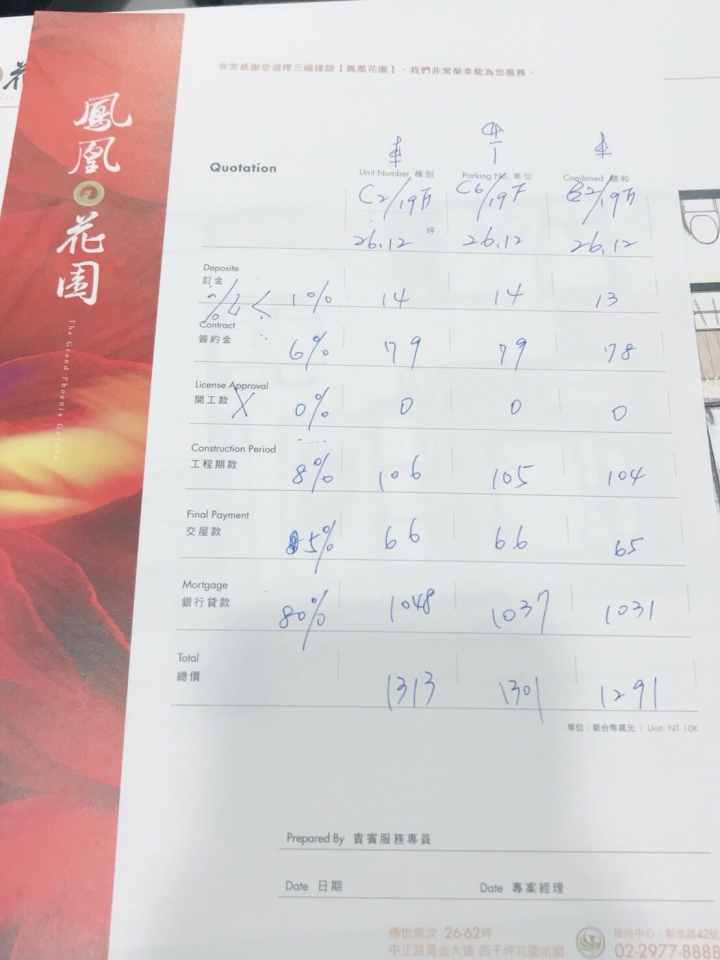 非常感謝您選擇三福建設【鳳凰花園】，我們非常榮幸能為您服務。
鳳凰花園
The Grand Phoenix Garden
Quotation
Unit Number 棟別 Parking NO. 車位 Combined 總和
C2/19F C6/19F 2/19F
26.12 坪 26.12 26.12
Deposite
訂金 1% 14 14 13
Contract
簽約金 6% 79 79 78
License Approval
開工款 X 0% 0 0 0
Construction Period
工程期款 8% 106 105 104
Final Payment
交屋款 5% 66 66 65
Mortgage
銀行貸款 80% 1048 1037 1031
Total
總價 1313 1301 1291
單位：新台幣萬元 / Unit: NT 10K
Prepared By 貴賓服務專員
Date 日期 Date 專案經理
傳世席次 26-62坪
中正路黃金大道 四千坪花園街廓
接待中心：新泰路42號
02-2977-8888